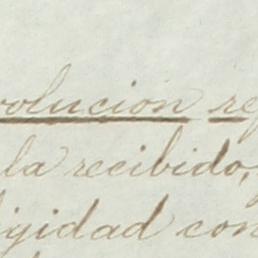 volución re
la recibido,
igidad con